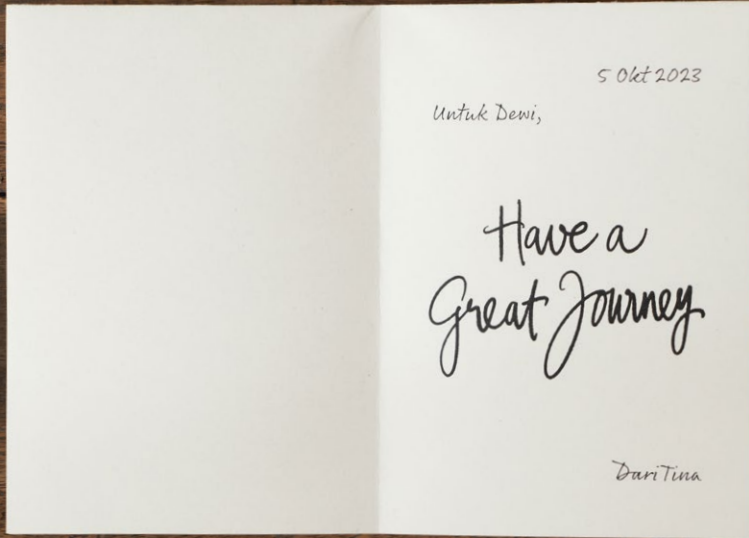 5 Okt 2023
Untuk Dewi,
Have a
Great Journey
Dari Tina